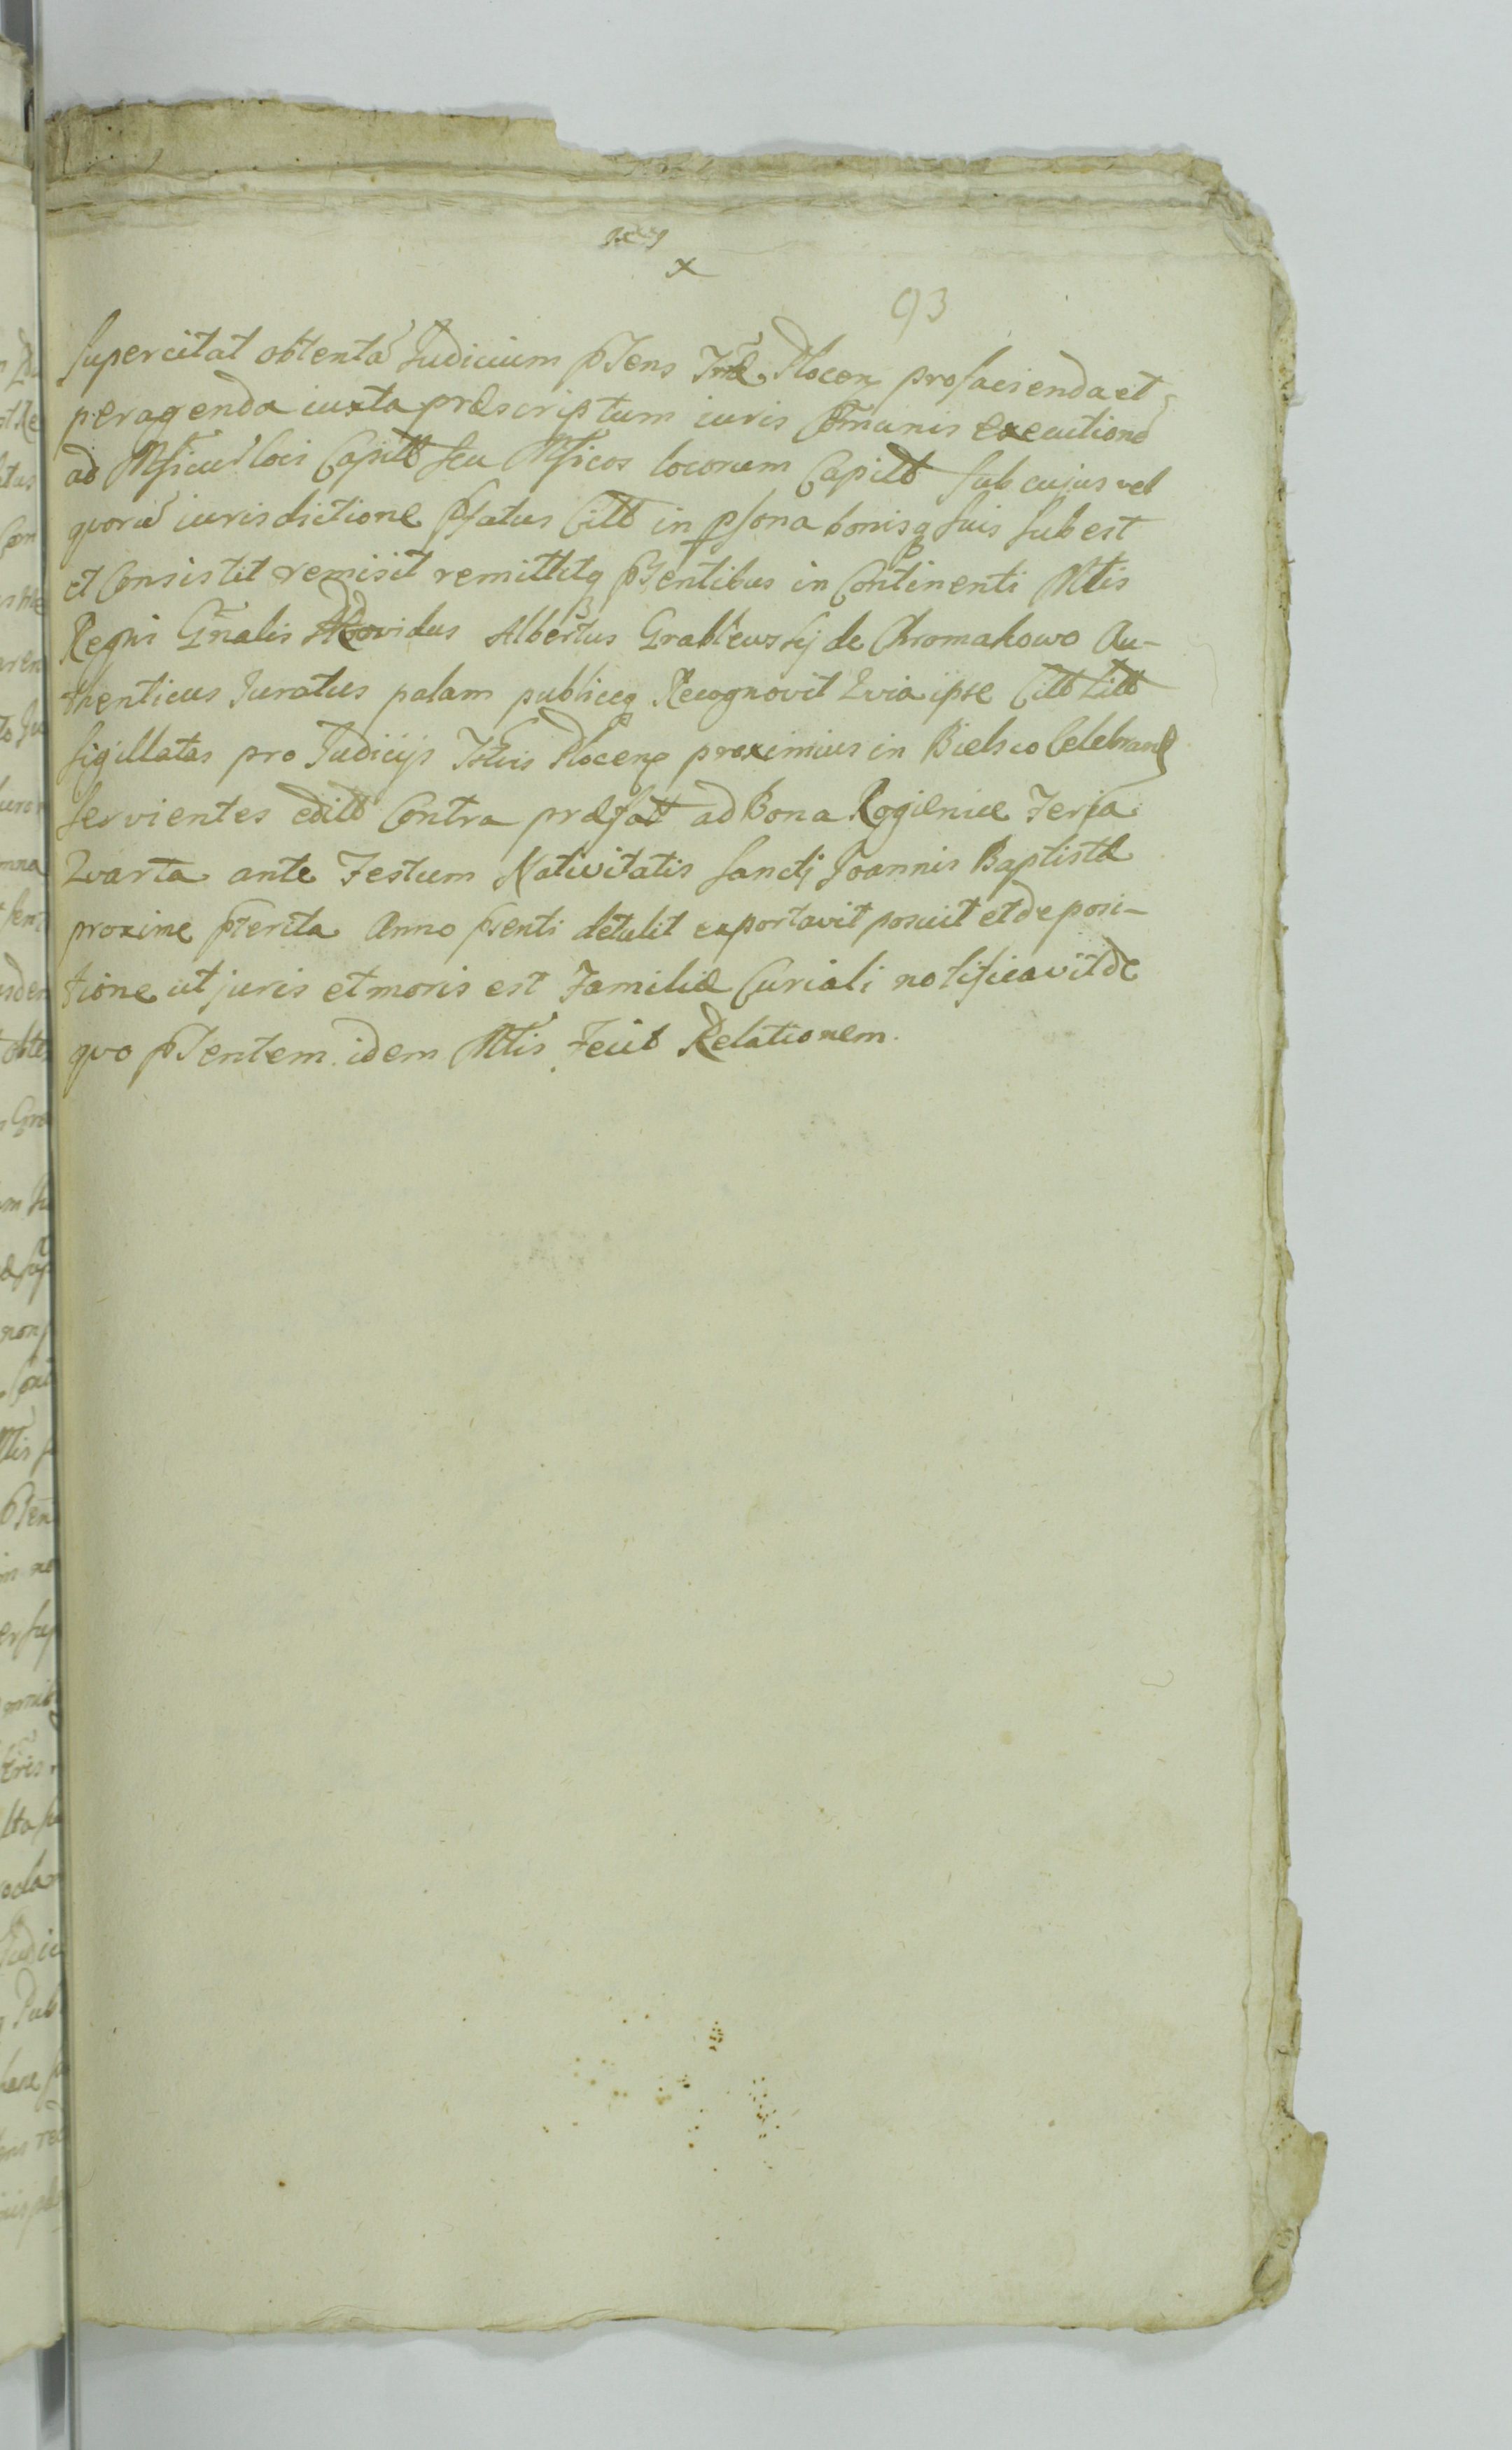 x
93
supercitat obtenta Judicium pSens Plocen pro facienda et
peragenda iuxta præscriptum iuris Comunis executione
ad Officiu loci Capitt seu Officos locorum Capitt sub cujus vel
quoru iurisdictione pfatus Citt in psona bonisq suis subest
et Consistit remisit remittitq pSentibus in Continenti Mtis
Regni Gnalis Providus Albertus Grablewskj de Chromakowo Au-
thenticus Juratus palam publiceq Recognovit Qvia ipse Citt Litt
sigillatas pro Judicijs Plocen proximius in Bielsco Celebrand
servientes editt Contra præfatt ad Bona Rogienice Feria
Qvarta ante Festum Nativitatis Sanctj Joannis Baptistæ
proxime pterita Anno psenti detulit exportavit posuit et de posi-
tione ut juris et moris est Familiæ Curiali notificavit de
qvo pSentem idem Mtis Fecit Relationem.